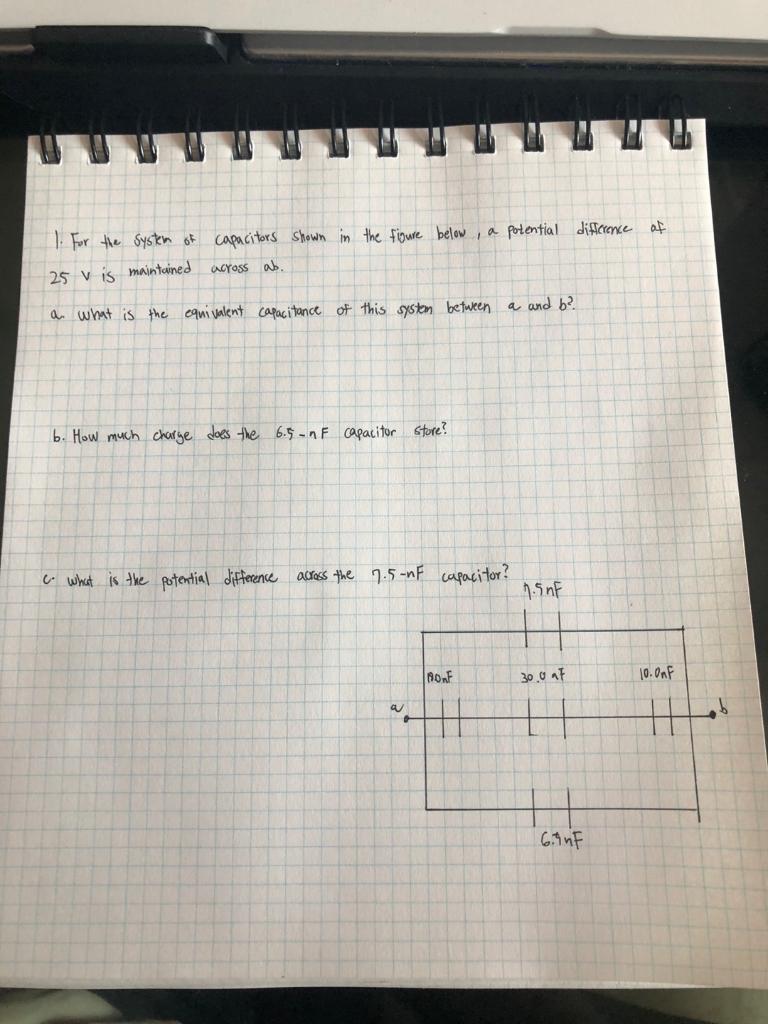 1. For the system of capacitors shown in the figure below, a potential difference of
25 V is maintained across ab.
a. What is the equivalent capacitance of this system between a and b?
b. How much charge does the 6.5-nF capacitor store?
c. what is the potential difference across the 7.5-nF capacitor?
7.5nF
30.0 nF
10.0nF
a
b